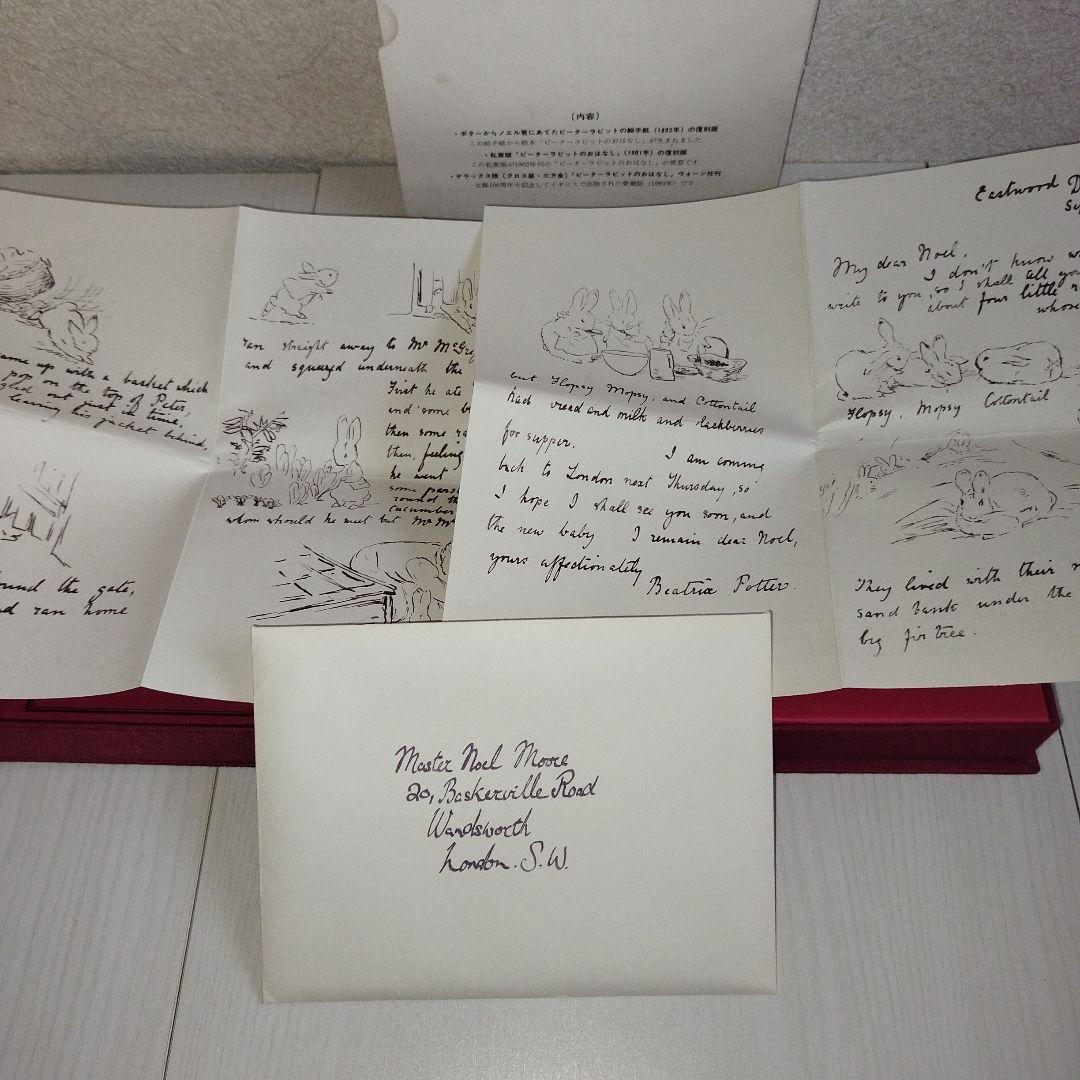 〔内容〕
・ポターからノエル君にあてたピーターラビットの絵手紙(1893年)の復刻版
この絵手紙から絵本「ピーターラビットのおはなし」が生まれました
・私家版「ピーターラビットのおはなし」(1901年)の復刻版
この私家版が1902年刊の「ピーターラビットのおはなし」の原型です
・デラックス版〔クロス装・三方金〕「ピーターラビットのおはなし」ウォーン社刊
生誕100周年を記念してイギリスで出版された愛蔵版(1993年)です
came up with a basket which
pop on the top of Peter,
out just in time,
leaving his jacket behind,
round the gate,
ran home
ran straight away to Mr McGre
and squeezed underneath the
First he ate
and some b
then some ra
then, feeling
he went
some pars
round th
cucumber
whom should he meet but Mr Mc
but Flopsy Mopsy, and Cottontail
had bread and milk and blackberries
for supper.
I am coming
back to London next Thursday, so
I hope I shall see you soon, and
the new baby I remain dear Noel,
yours affectionately
Beatrix Potter.
Eastwood D
Se
My dear Noel,
I don't know w
write to you, so I shall tell you
about four little r
whose
Flopsy, Mopsy Cottontail
They lived with their m
sand bank under the
big fir tree.
Master Noel Moore
20, Baskerville Road
Wandsworth
London. S.W.